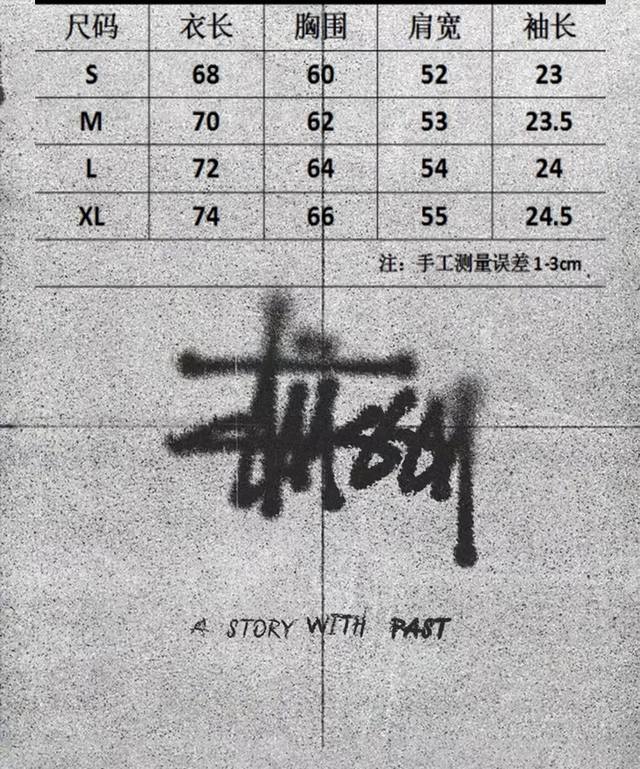 尺码 衣长 胸围 肩宽 袖长
S 68 60 52 23
M 70 62 53 23.5
L 72 64 54 24
XL 74 66 55 24.5
注：手工测量误差1-3cm
Stüssy
A STORY WITH PAST